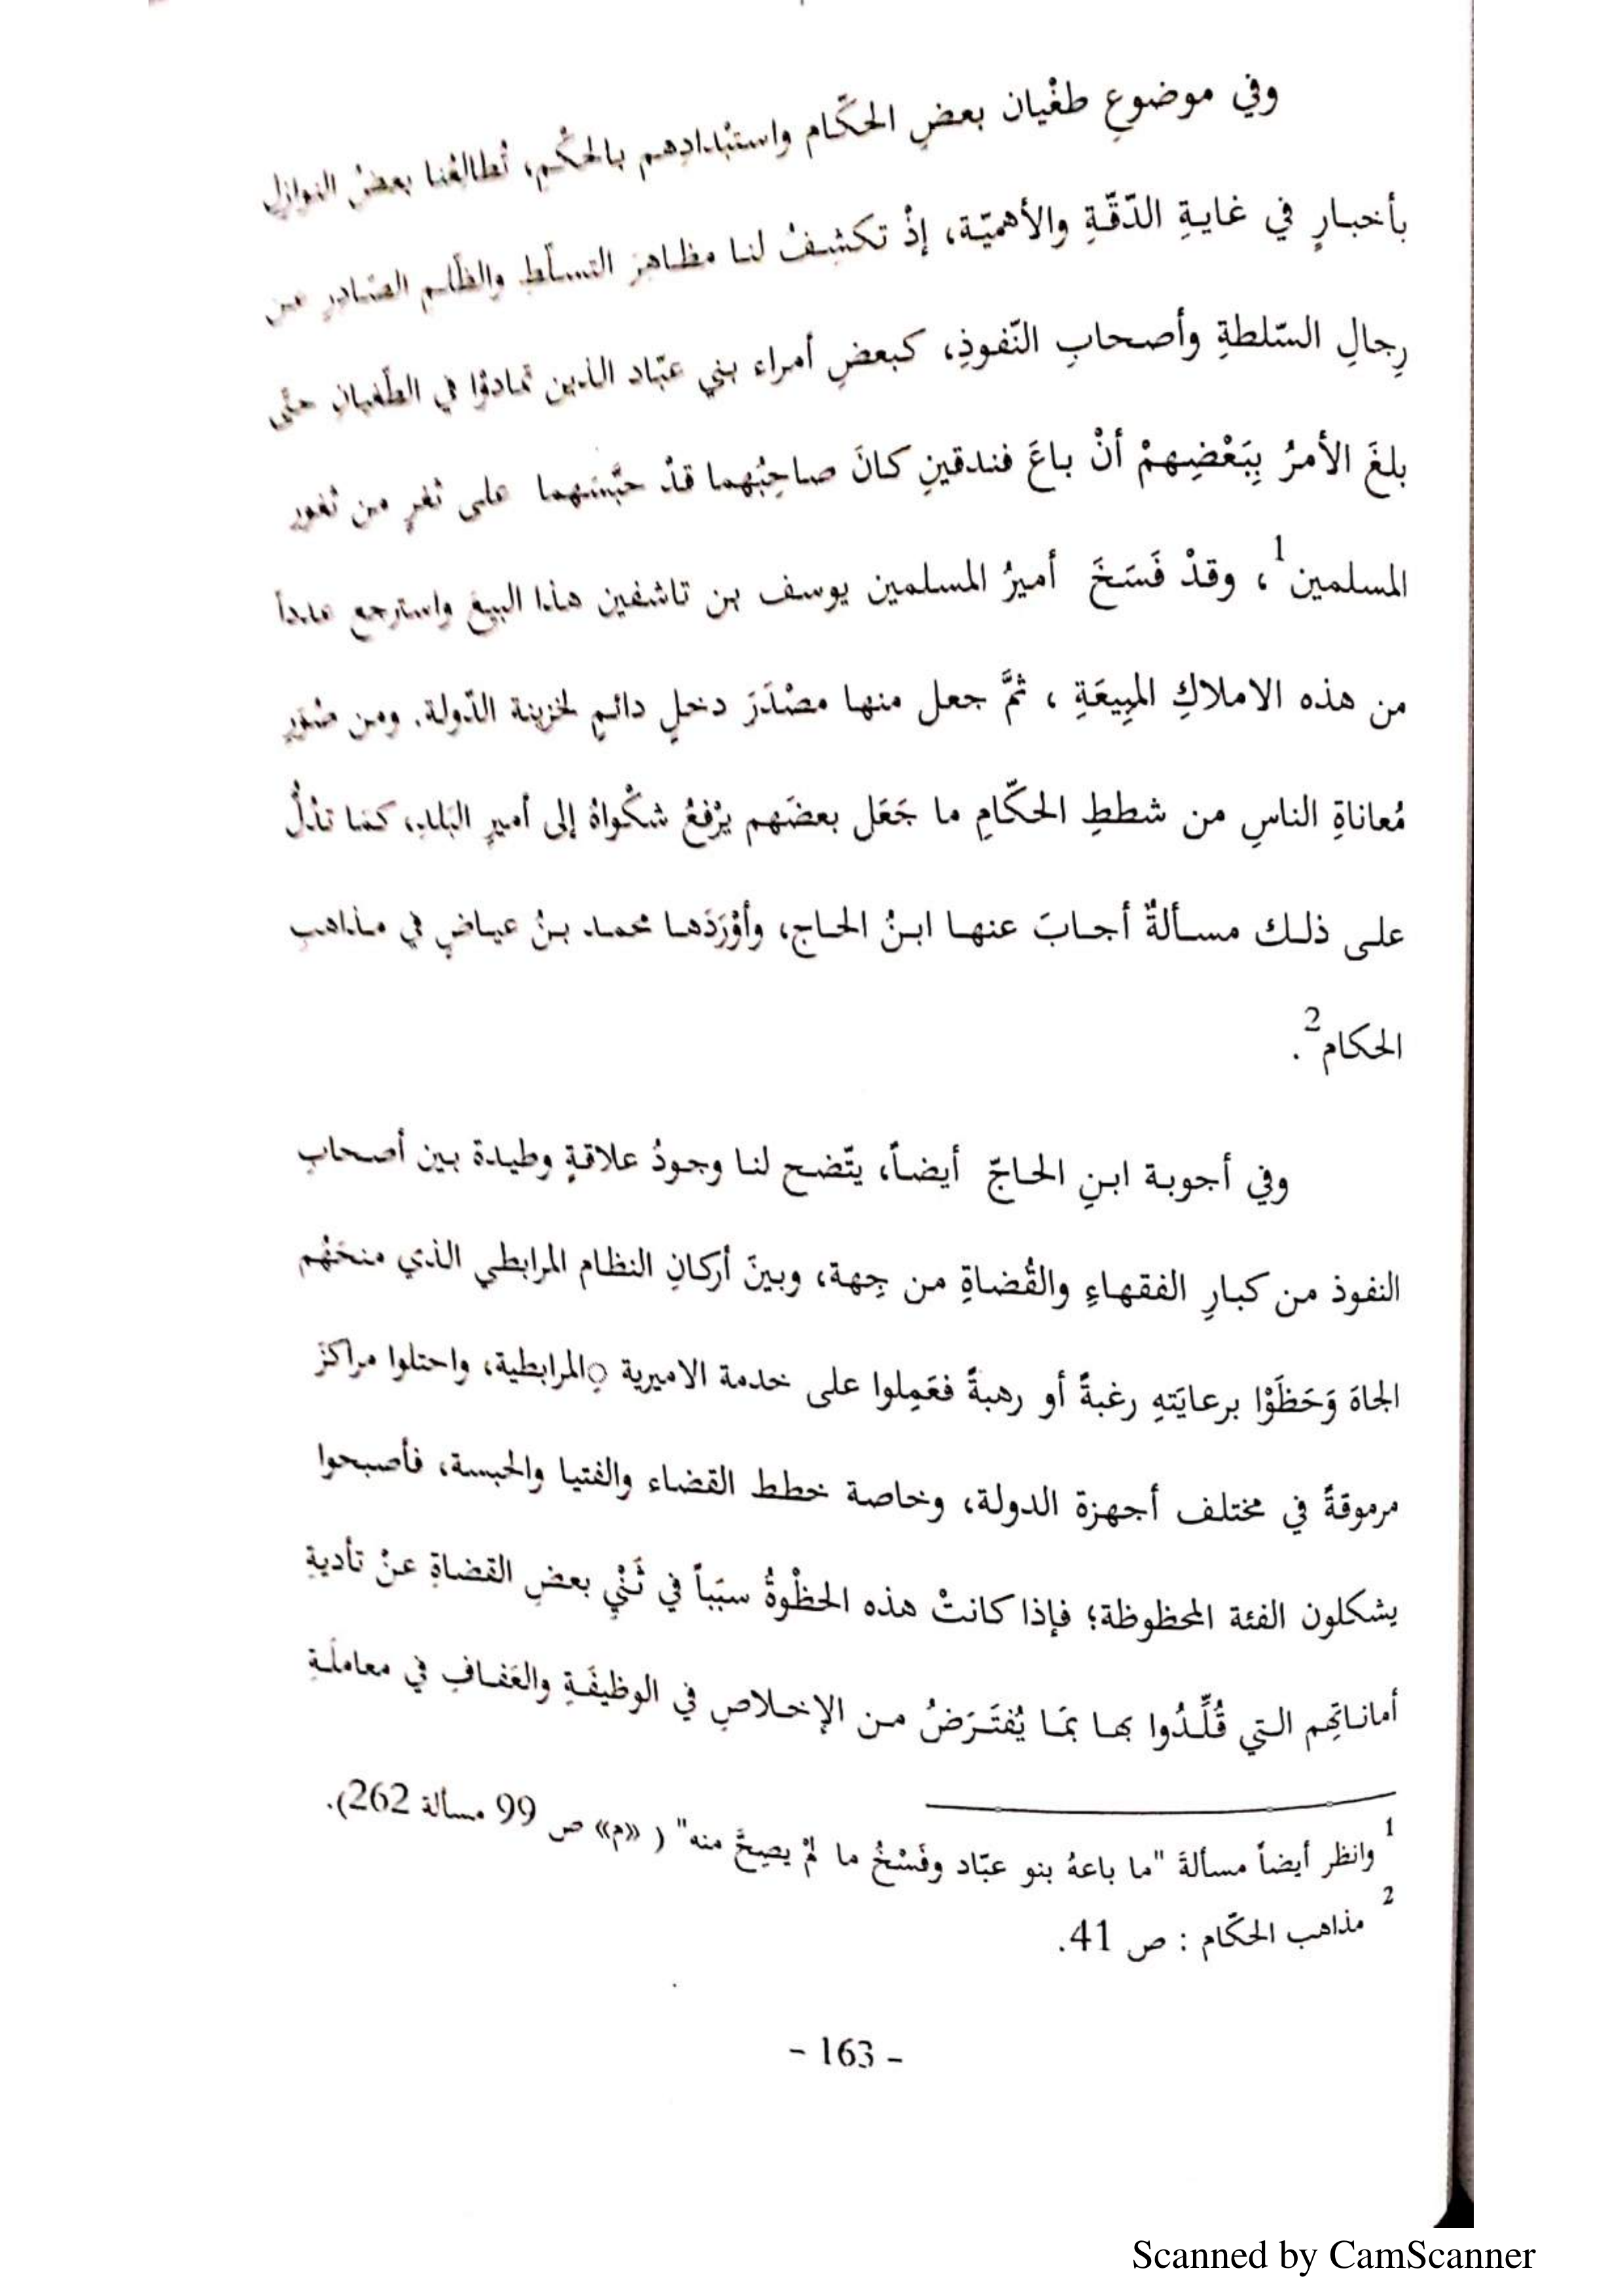 وفي موضوعِ طغْيان بعضِ الحكّام واستبْدادِهم بالحكْمِ، تُطالِعُنا بعضُ النوازلِ
بأخبـارٍ في غايـةِ الدّقّـةِ والأهميّـة، إذْ تكشِـفُ لنـا مظـاهِرَ التسلّطِ والظّلـم الصّـادرِ عـن
رِجالِ السّلطةِ وأصحابِ النّفوذِ، كبعضِ أمراء بني عبّاد الذين تمادوْا في الطّغيانِ حتّى
بلغَ الأمرُ بِبَعْضِهمْ أنْ باعَ فندقينِ كانَ صاحِبُهما قدْ حبَّسَهما على ثغرٍ من ثغور
المسلمين1، وقدْ فَسَخَ أميرُ المسلمين يوسف بن تاشفين هذا البيعَ واسترجع عدداً
من هذه الاملاكِ المبِيعَةِ ، ثمَّ جعل منها مصْدَرَ دخلٍ دائمٍ لخزينة الدّولة. ومن صُوَرِ
مُعاناةِ الناسِ من شططِ الحكّامِ ما جَعَل بعضَهم يرْفعُ شكْواهُ إلى أميرِ البَلدِ، كمَا تدُلُّ
علـى ذلـك مسـألةٌ أجـابَ عنهـا ابـنُ الحـاج، وأوْرَدَهـا محمـد بـنُ عيـاضٍ في مـذاهبِ
الحكام2.
وفي أجوبـة ابـنِ الحـاجّ أيضـاً، يتّضـح لنـا وجـودُ علاقـةٍ وطيـدة بـين أصـحابِ
النفوذ من كبـارِ الفقهـاءِ والقُضـاةِ من جِهة، وبينَ أركانِ النظام المرابطي الذي منحَهُم
الجاهَ وَحَظَوْا برعايَتهِ رغبةً أو رهبةً فعَمِلوا على خدمة الاميرية ِالمرابطية، واحتلوا مراكزَ
مرموقةً في مختلف أجهزة الدولة، وخاصة خطط القضاء والفتيا والحبسة، فأصبحوا
يشكلون الفئة المحظوظة؛ فإذا كانتْ هذه الحظْوةُ سبَباً في ثَنْيِ بعضِ القضاةِ عنْ تأديةِ
أمانـاتِهِم الـتي قُلِّـدُوا بهـا بمَـا يُفتَـرَضُ مـن الإخـلاصِ في الوظيفَـةِ والعَفـافِ في معاملَـةِ
1 وانظر أيضاً مسألةَ "ما باعهُ بنو عبّاد وفَسْخُ ما لمْ يصِحَّ منه" ( «م» ص 99 مسألة 262).
2 مذاهب الحكّام : ص 41.
- 163 -
Scanned by CamScanner